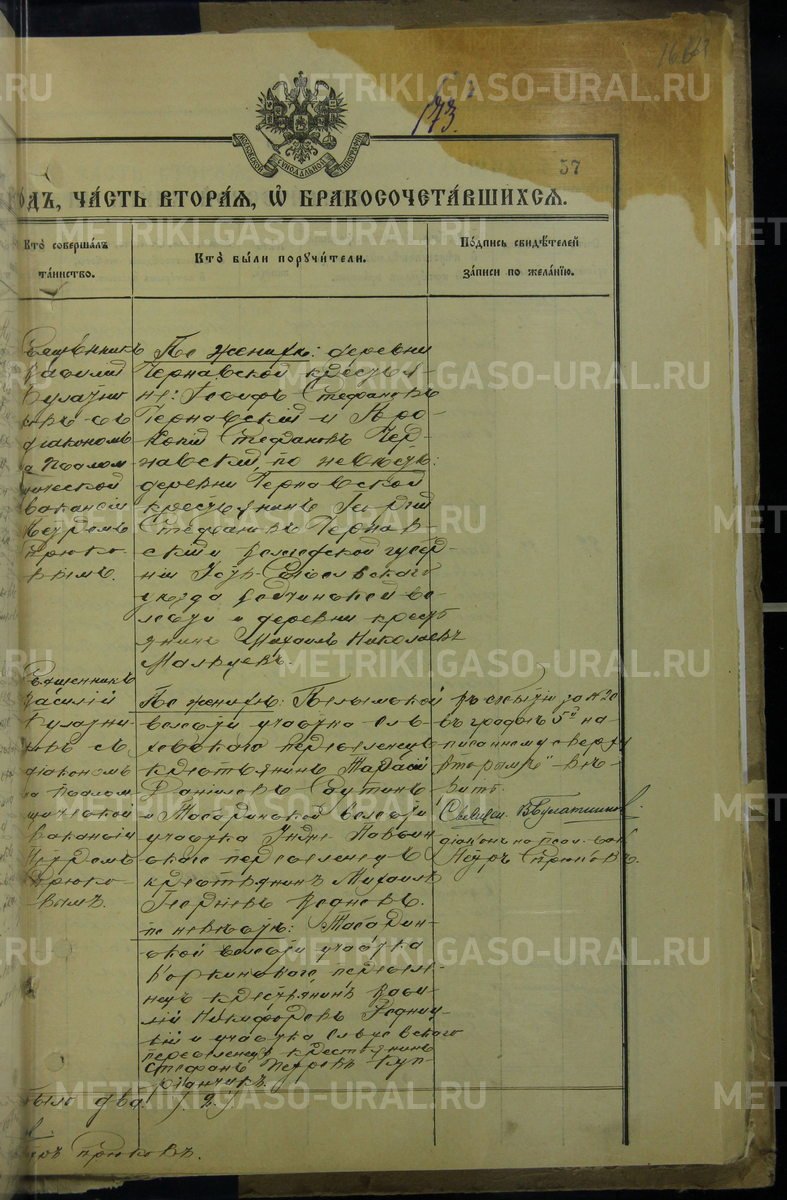 166
173.
57
МОСКОВСКОЙ СУНОДАЛЬНОЙ ТИПОГРАФІИ
ГОДЪ, ЧАСТЬ ВТОРАЯ, Ѡ БРАКОСОЧЕТАВШИХСЯ.
Кто совершалъ
таинство.
Кто были поручители.
Подпись свидѣтелей
записи по желанію.
Священникъ
Василій
съ
діакономъ
на Псалом
щической
вакансіи
Петромъ
Прюко-
вымъ.
По женихѣ: деревни
Чернавской крестья-
не: Іосифъ Стефановъ
Чернавскій и Про-
копій Стефановъ Чер-
навскій, по невѣстѣ:
деревни Чернавской
крестьянинъ
Стефановъ Чернав-
скій и Вологодской губер-
ніи Усть-Сысольскаго
уѣзда во-
лости и деревни кресть
янинъ Михаилъ Николаевъ
Мальцевъ.
Священникъ
Василій
Булатни-
ковъ съ
діакономъ
на Псалом
щической
вакансіи
Петромъ
Прюко-
вымъ.
По женихѣ: Пелымской
волости участка Ель-
переселенецъ
крестьянинъ Тарасій
Даніиловъ
и Табаринской волости
участка
скаго переселенецъ
крестьянинъ Михаилъ
по невѣстѣ: Табарин-
ской волости участка
переселе-
нецъ крестьянинъ Васи-
лій Никифоровъ
кій и участка
переселенецъ крестьянинъ
Стефанъ Петровъ Куп-
ріанчикъ.
Въ статьи за № 20
въ графѣ 5й на-
писанному сверху
"вторымъ" вѣ-
рить.
Священ. В. Булатниковъ.
діаконъ на псал. вак.
Петръ Прюковъ.
было два (2)
Прюковъ.
METRIKI.GASO-URAL.RU